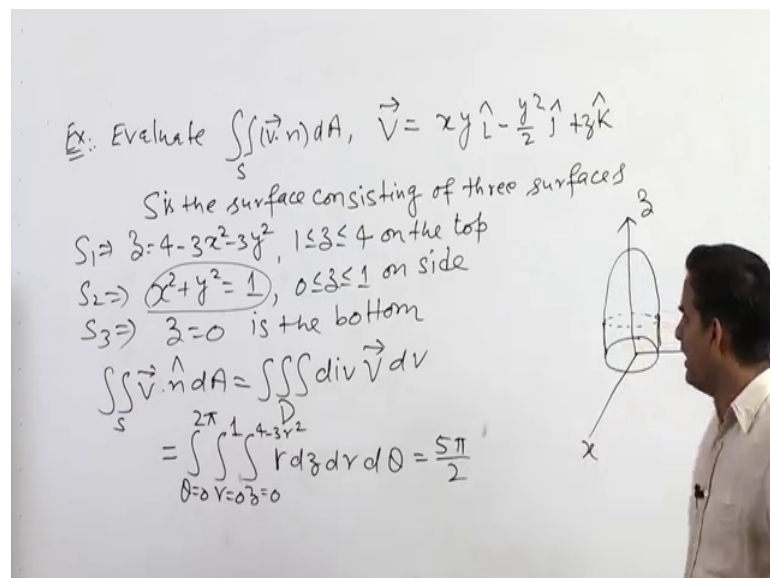 Ex:. Evaluate ∬_S (v⃗·n) dA, V⃗ = xy î - y²/2 ĵ + z k̂
S is the surface consisting of three surfaces
S₁ ⇒ z = 4 - 3x² - 3y², 1 ≤ z ≤ 4 on the top
S₂ ⇒ x² + y² = 1, 0 ≤ z ≤ 1 on side
S₃ ⇒ z = 0 is the bottom
∬_S V⃗·n̂ dA = ∭_D div V⃗ dv
= ∫_{θ=0}^{2π} ∫_{r=0}^{1} ∫_{z=0}^{4-3r²} r dz dr dθ = 5π/2
z
x